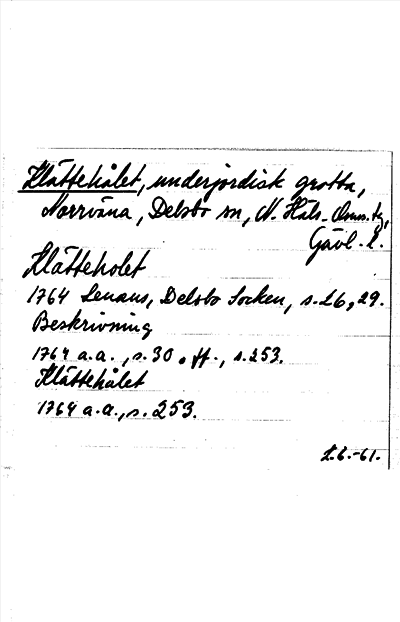 Klättehålet, underjordisk grotta,
Norrväna, Delsbo sn, N. Häls. Doms.tg,
Gävl. l.
Klätteholet
1764 Lenæus, Delsbo Socken, s. 26, 29.
Beskrivning
1764 a.a., s. 30 o. ff., s. 253.
Klättehålet
1764 a.a., s. 253.
L.b.-61.